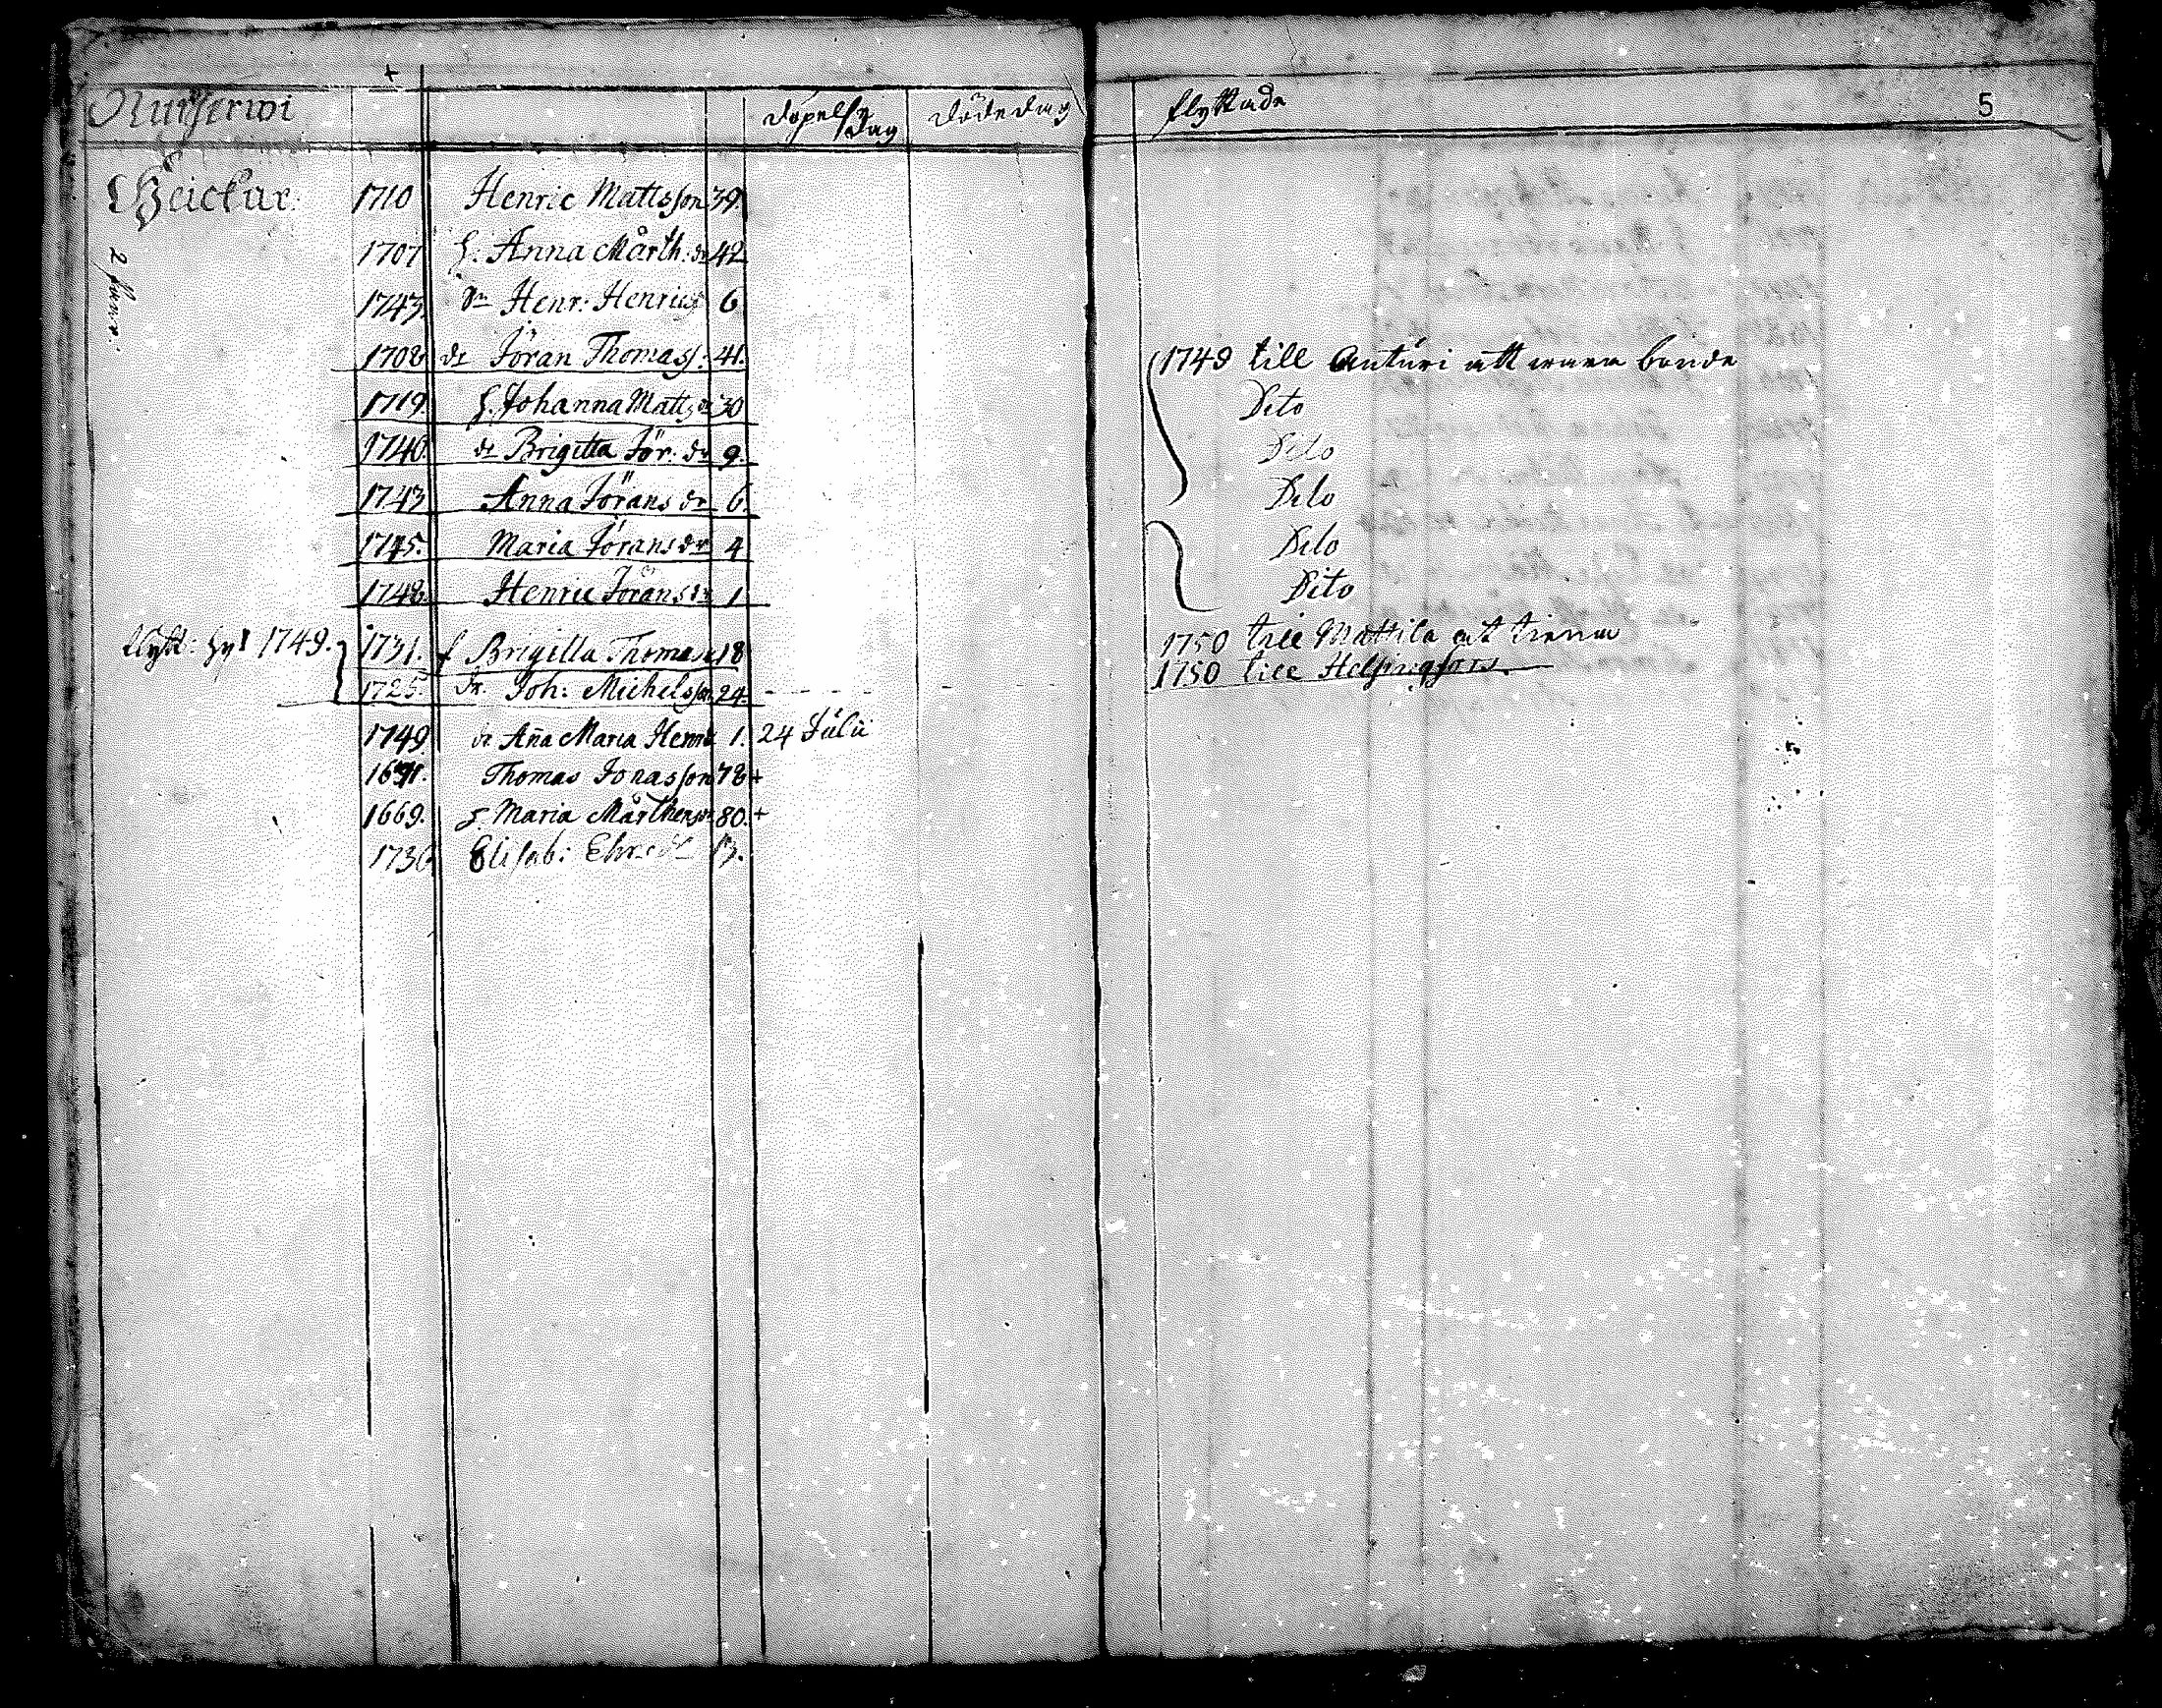 döpelse dag dödedag flyttade 5
Heickar 1710 Henric Mattsson 39.
1707 h. Anna Mårth: dr 42
1743. Sn Henr: Henrics 6
1708 dr Jöran Thomass: 41. 1749 till Anturi att wara bonde
1719 h. Johanna Matts dr 30 Dito
1740. dr Brigitta Jör. dr 9. Dito
1743 Anna Jörans dr 6. Dito
1745. Maria Jörans dr 4 Dito
1748 Henric Jörans 1 Dito
flytt: hit 1749. 1731. Brigitta Thomasd 18 1750 till Mattila att tiena
1725. dr. Joh: Michelsson 24. 1750 till Helsingfors.
1749 dr Aña Maria Henrd 1. 24 Julii
1671. Thomas Jonasson 78 +
1669. h Maria Mårthens 80. +
1736 Elisab: 13.